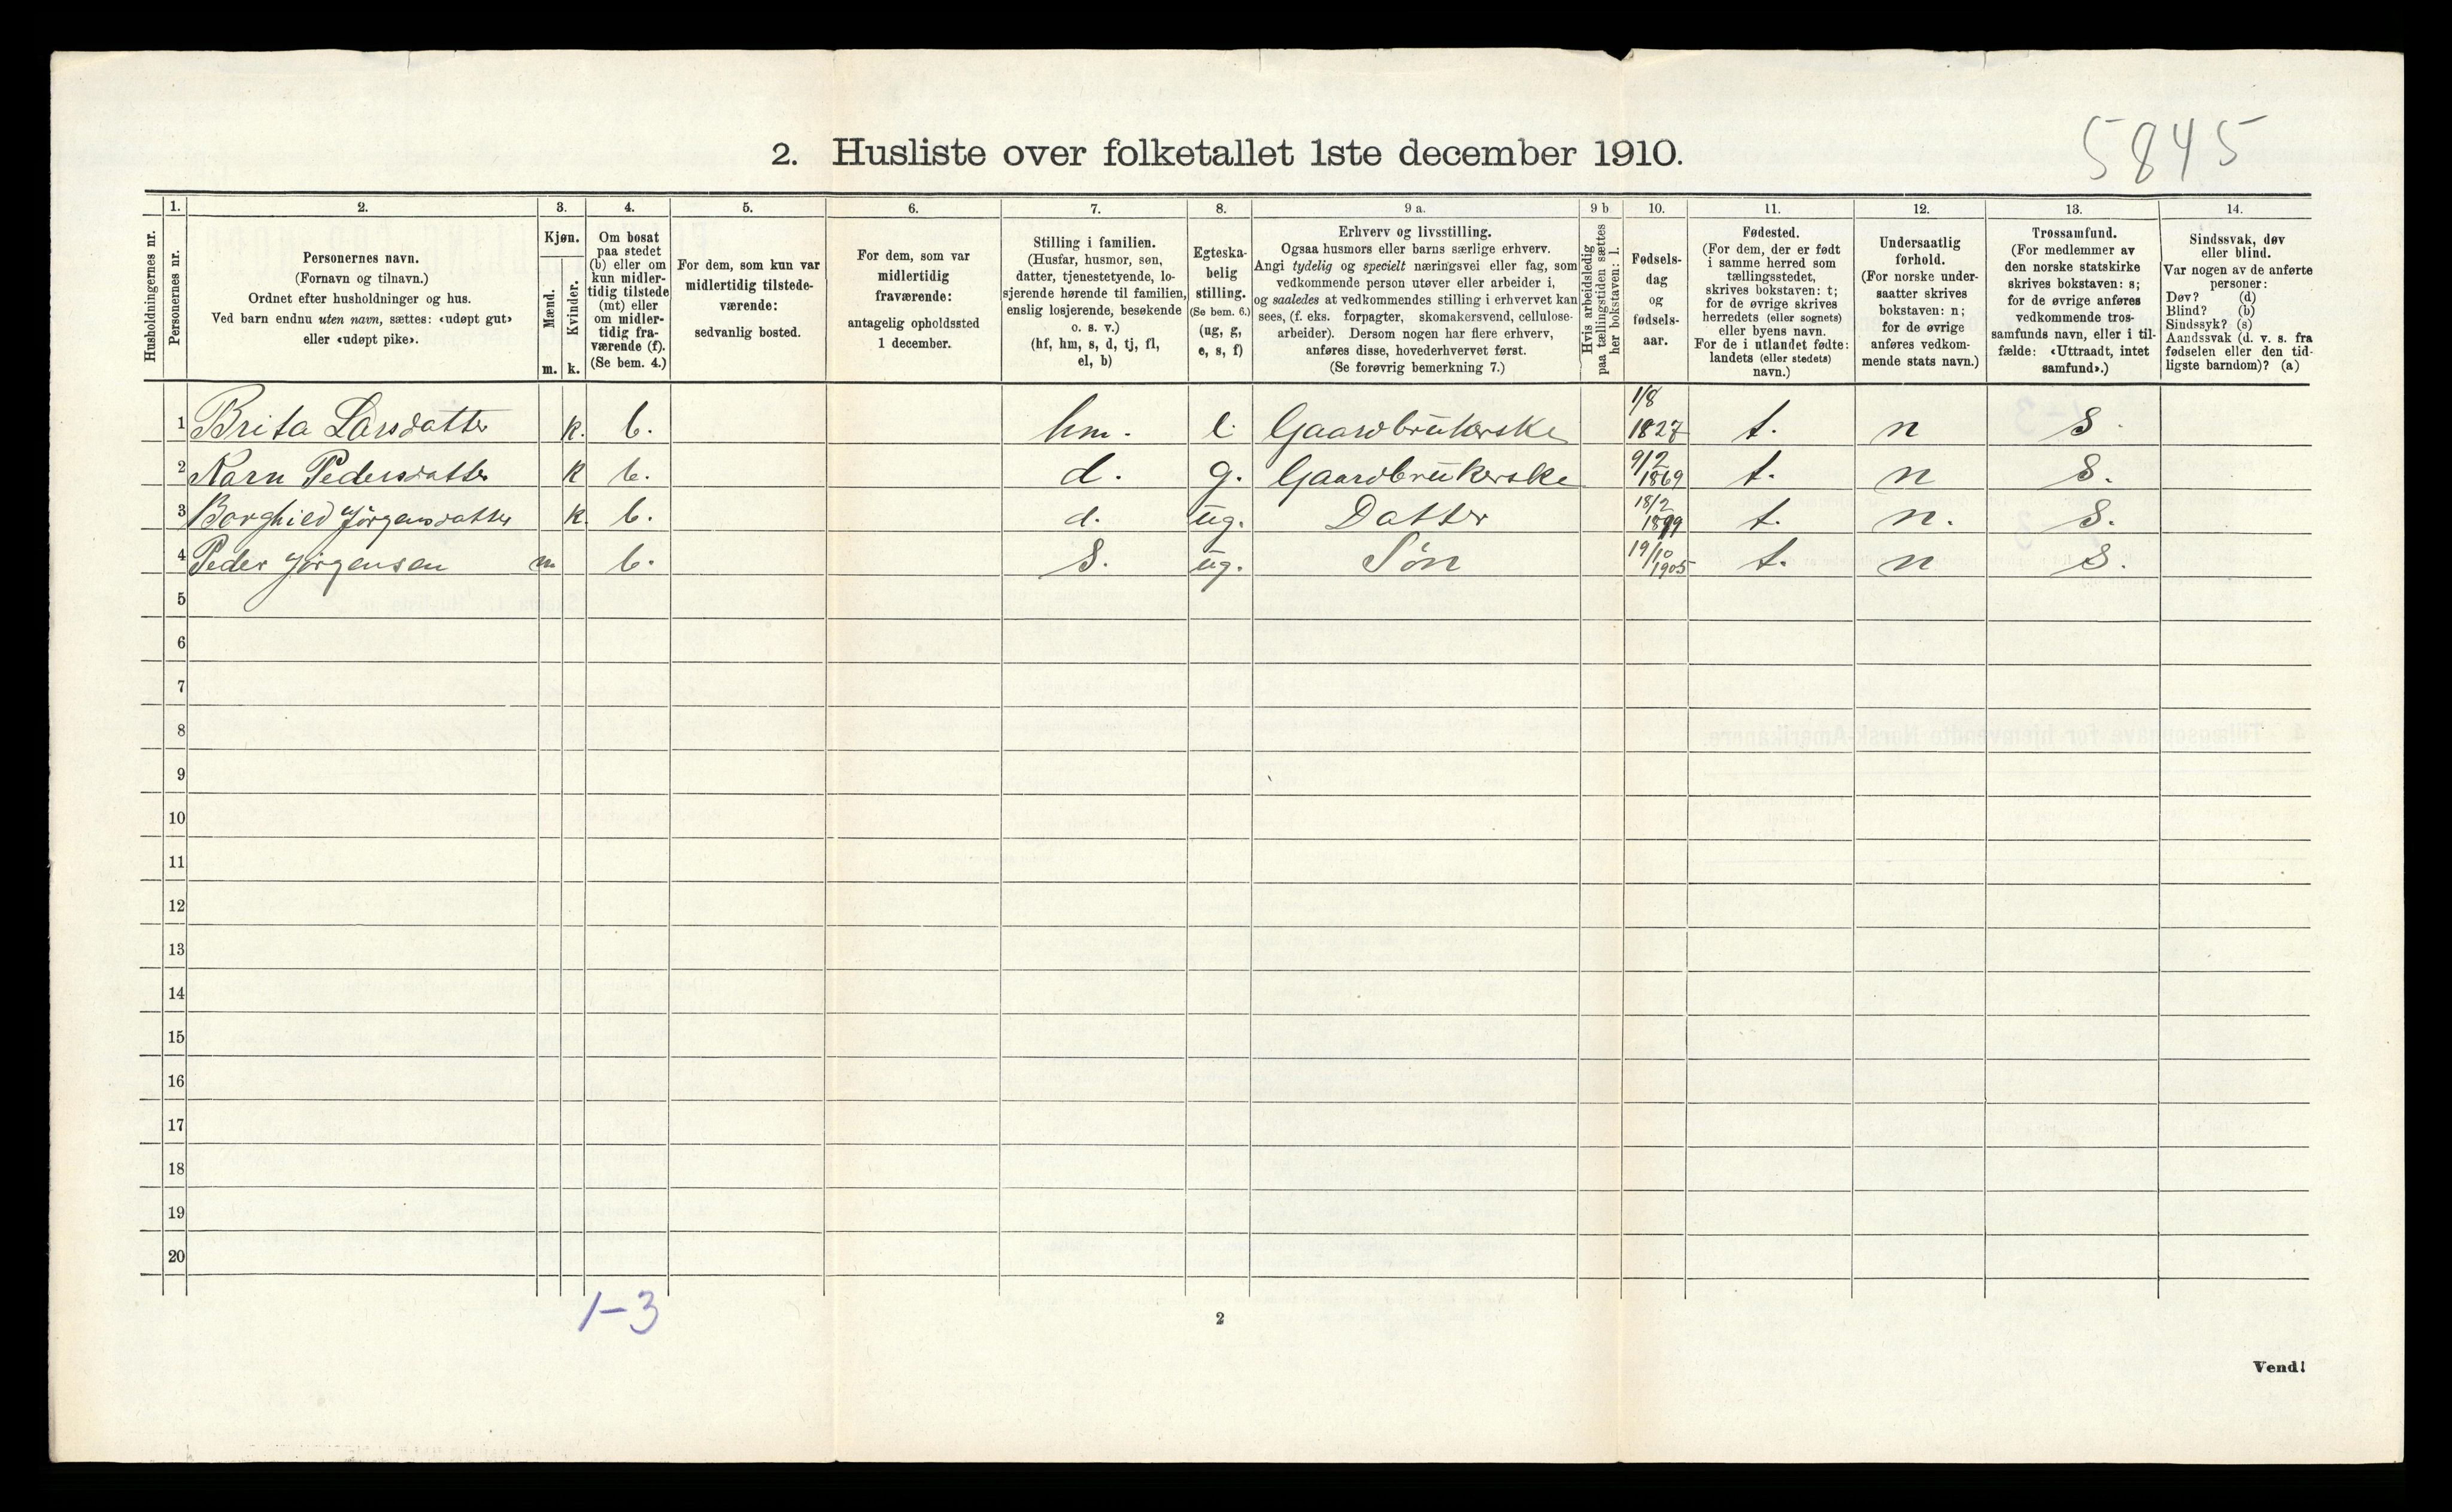 5845
2. Husliste over folketallet 1ste december 1910.
1. 2. 3. 4. 5. 6. 7. 8. 9 a. 9 b 10. 11. 12. 13. 14.
Husholdningernes nr.
Personernes nr.
Personernes navn.
(Fornavn og tilnavn.)
Ordnet efter husholdninger og hus.
Ved barn endnu uten navn, sættes: «udøpt gut»
eller «udøpt pike».
Kjøn.
Mænd.
Kvinder.
m. k.
Om bosat
paa stedet
(b) eller om
kun midler-
tidig tilstede
(mt) eller
om midler-
tidig fra-
værende (f).
(Se bem. 4.)
For dem, som kun var
midlertidig tilstede-
værende:
sedvanlig bosted.
For dem, som var
midlertidig
fraværende:
antagelig opholdssted
1 december.
Stilling i familien.
(Husfar, husmor, søn,
datter, tjenestetyende, lo-
sjerende hørende til familien,
enslig losjerende, besøkende
o. s. v.)
(hf, hm, s, d, tj, fl,
el, b)
Egteska-
belig
stilling.
(Se bem. 6.)
(ug, g,
e, s, f)
Erhverv og livsstilling.
Ogsaa husmors eller barns særlige erhverv.
Angi tydelig og specielt næringsvei eller fag, som
vedkommende person utøver eller arbeider i,
og saaledes at vedkommendes stilling i erhvervet kan
sees, (f. eks. forpagter, skomakersvend, cellulose-
arbeider). Dersom nogen har flere erhverv,
anføres disse, hovederhvervet først.
(Se forøvrig bemerkning 7.)
Hvis arbeidsledig
paa tællingstiden sættes
her bokstaven: l.
Fødsels-
dag
og
fødsels-
aar.
Fødested.
(For dem, der er født
i samme herred som
tællingsstedet,
skrives bokstaven: t;
for de øvrige skrives
herredets (eller sognets)
eller byens navn.
For de i utlandet fødte:
landets (eller stedets)
navn.)
Undersaatlig
forhold.
(For norske under-
saatter skrives
bokstaven: n;
for de øvrige
anføres vedkom-
mende stats navn.)
Trossamfund.
(For medlemmer av
den norske statskirke
skrives bokstaven: s;
for de øvrige anføres
vedkommende tros-
samfunds navn, eller i til-
fælde: «Uttraadt, intet
samfund».)
Sindssvak, døv
eller blind.
Var nogen av de anførte
personer:
Døv? (d)
Blind? (b)
Sindssyk? (s)
Aandssvak (d. v. s. fra
fødselen eller den tid-
ligste barndom)? (a)
1 Brita Larsdatter k. b. hm. e. Gaardbrukerske 1/8 1827 t. n s.
2 Karn Pedersdatter k b. d. g. Gaardbrukerske 9/2 1869 t. n s.
3 Borghied Jörgensdatter k. b. d. ug. Datter 18/2 1899 t. n. s.
4 Peder Jörgensen m b. s. ug. Søn 19/10 1905 t. n s.
5
6
7
8
9
10
11
12
13
14
15
16
17
18
19
20
1-3
2
Vend!